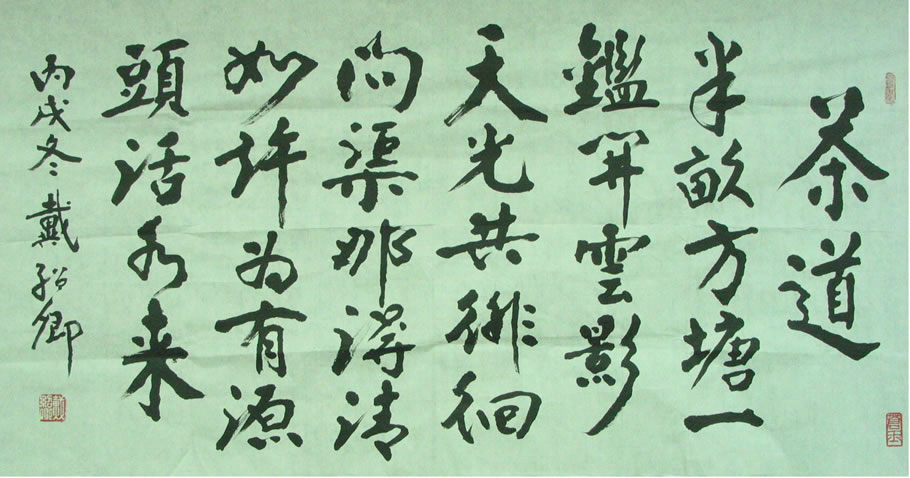 茶道
半畝方塘一
鑑開雲影
天光共徘徊
问渠那得清
如許为有源
頭活水来
丙戌冬戴紹卿